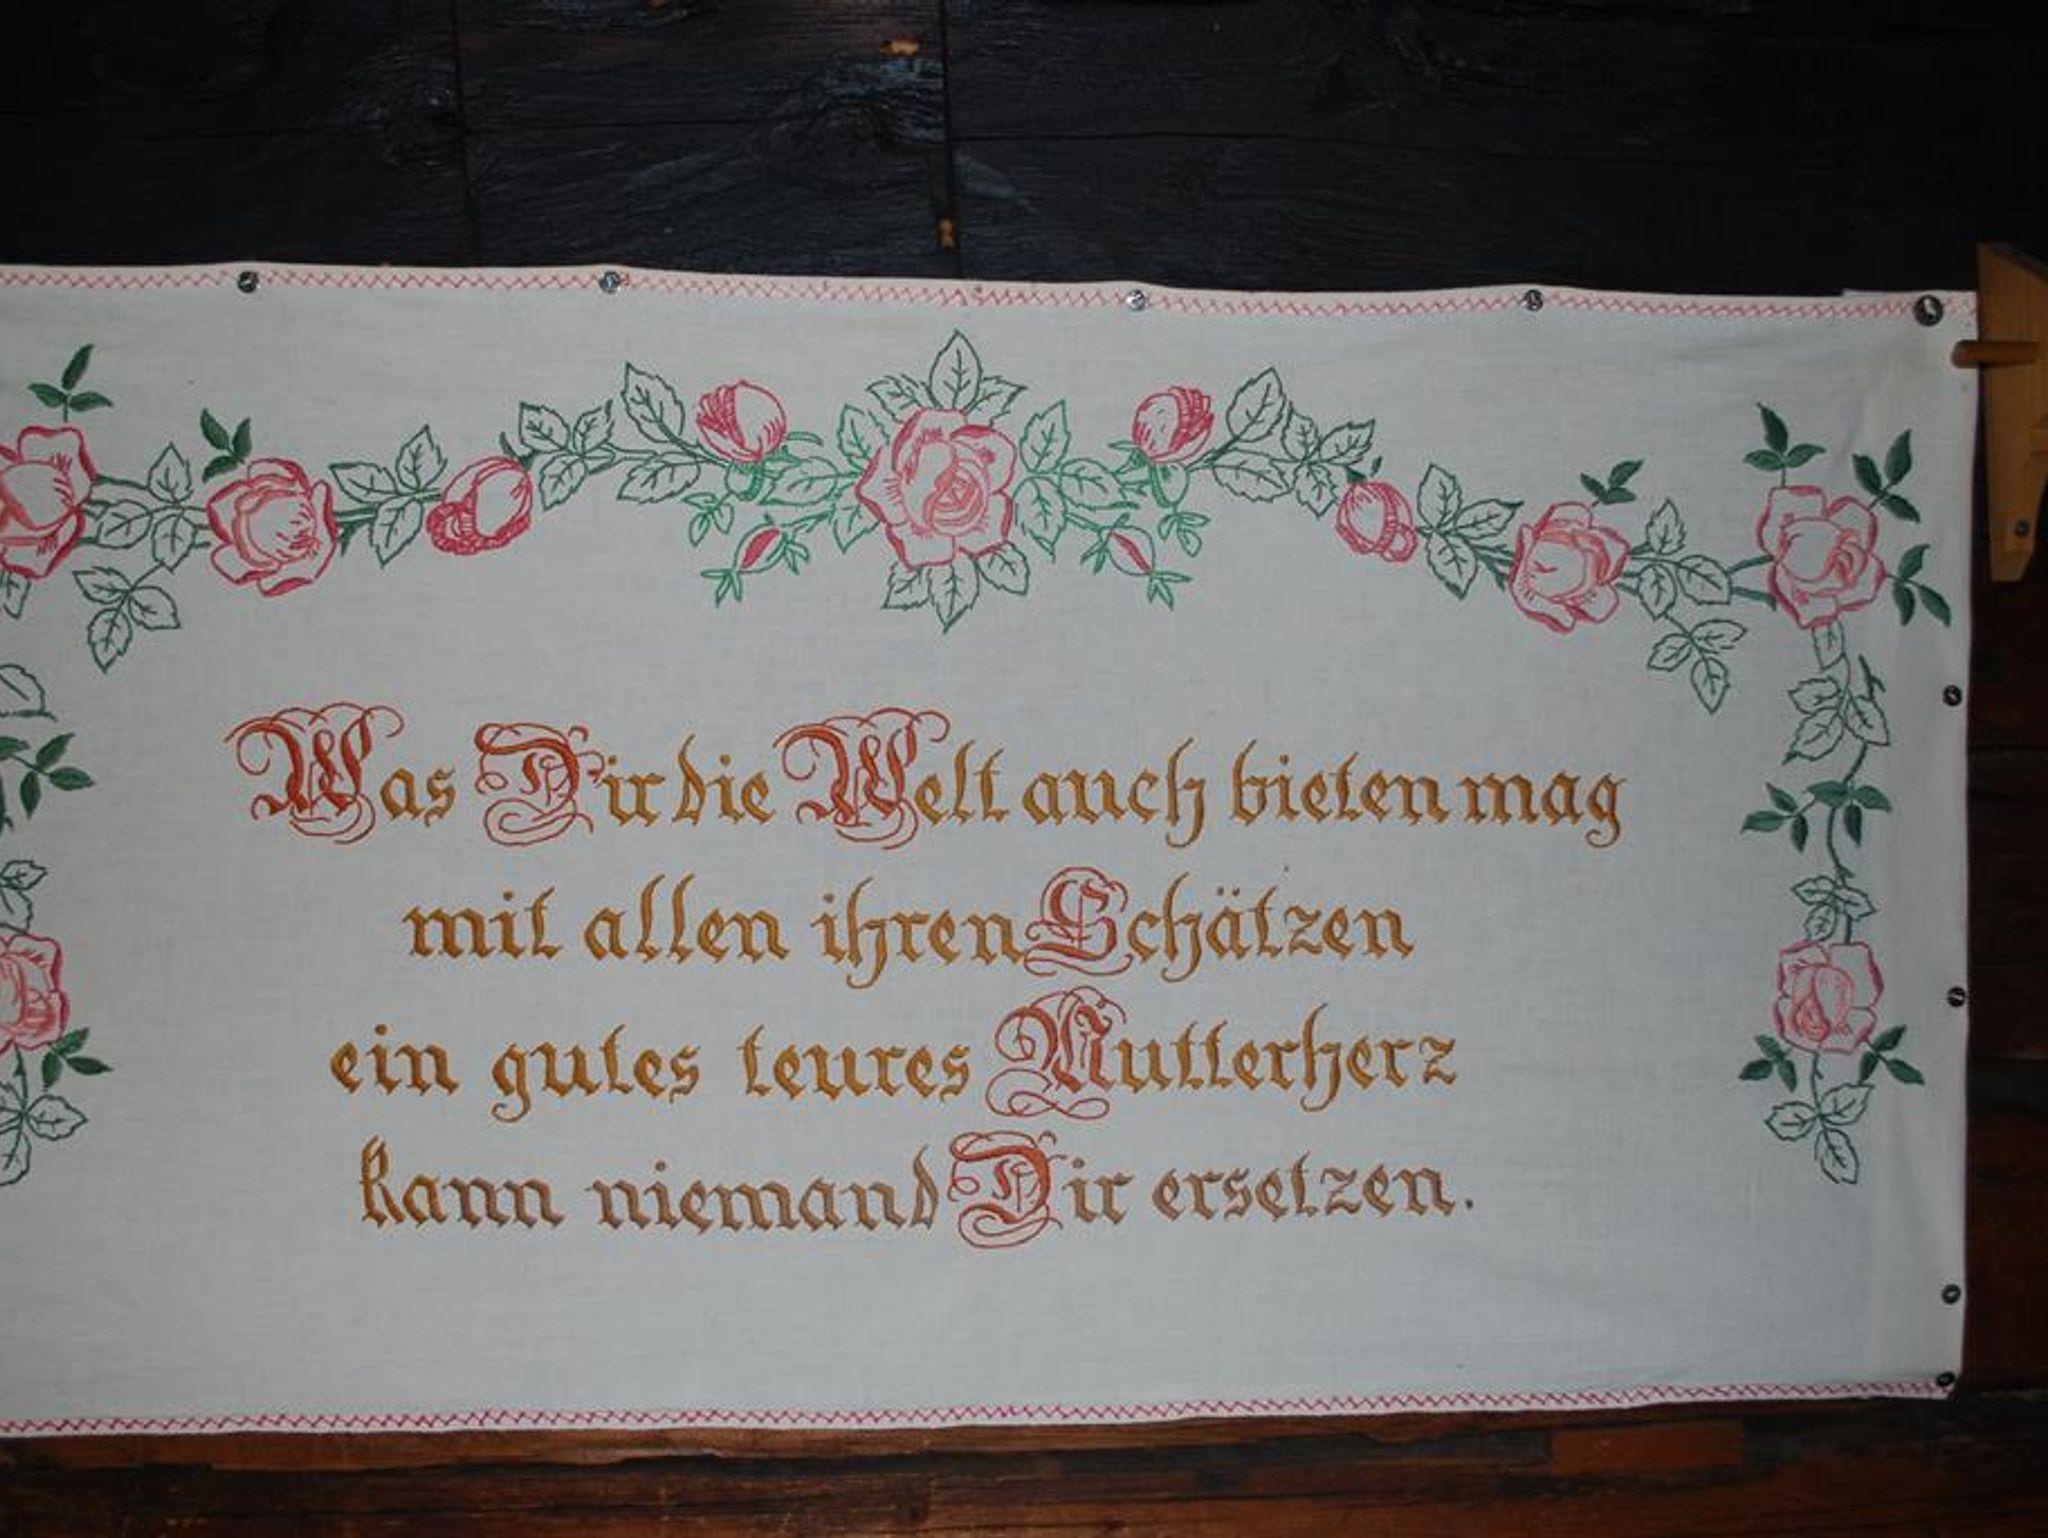 Was Dir die Welt auch bieten mag
mit allen ihren Schätzen
ein gutes teures Mutterherz
kann niemand Dir ersetzen.